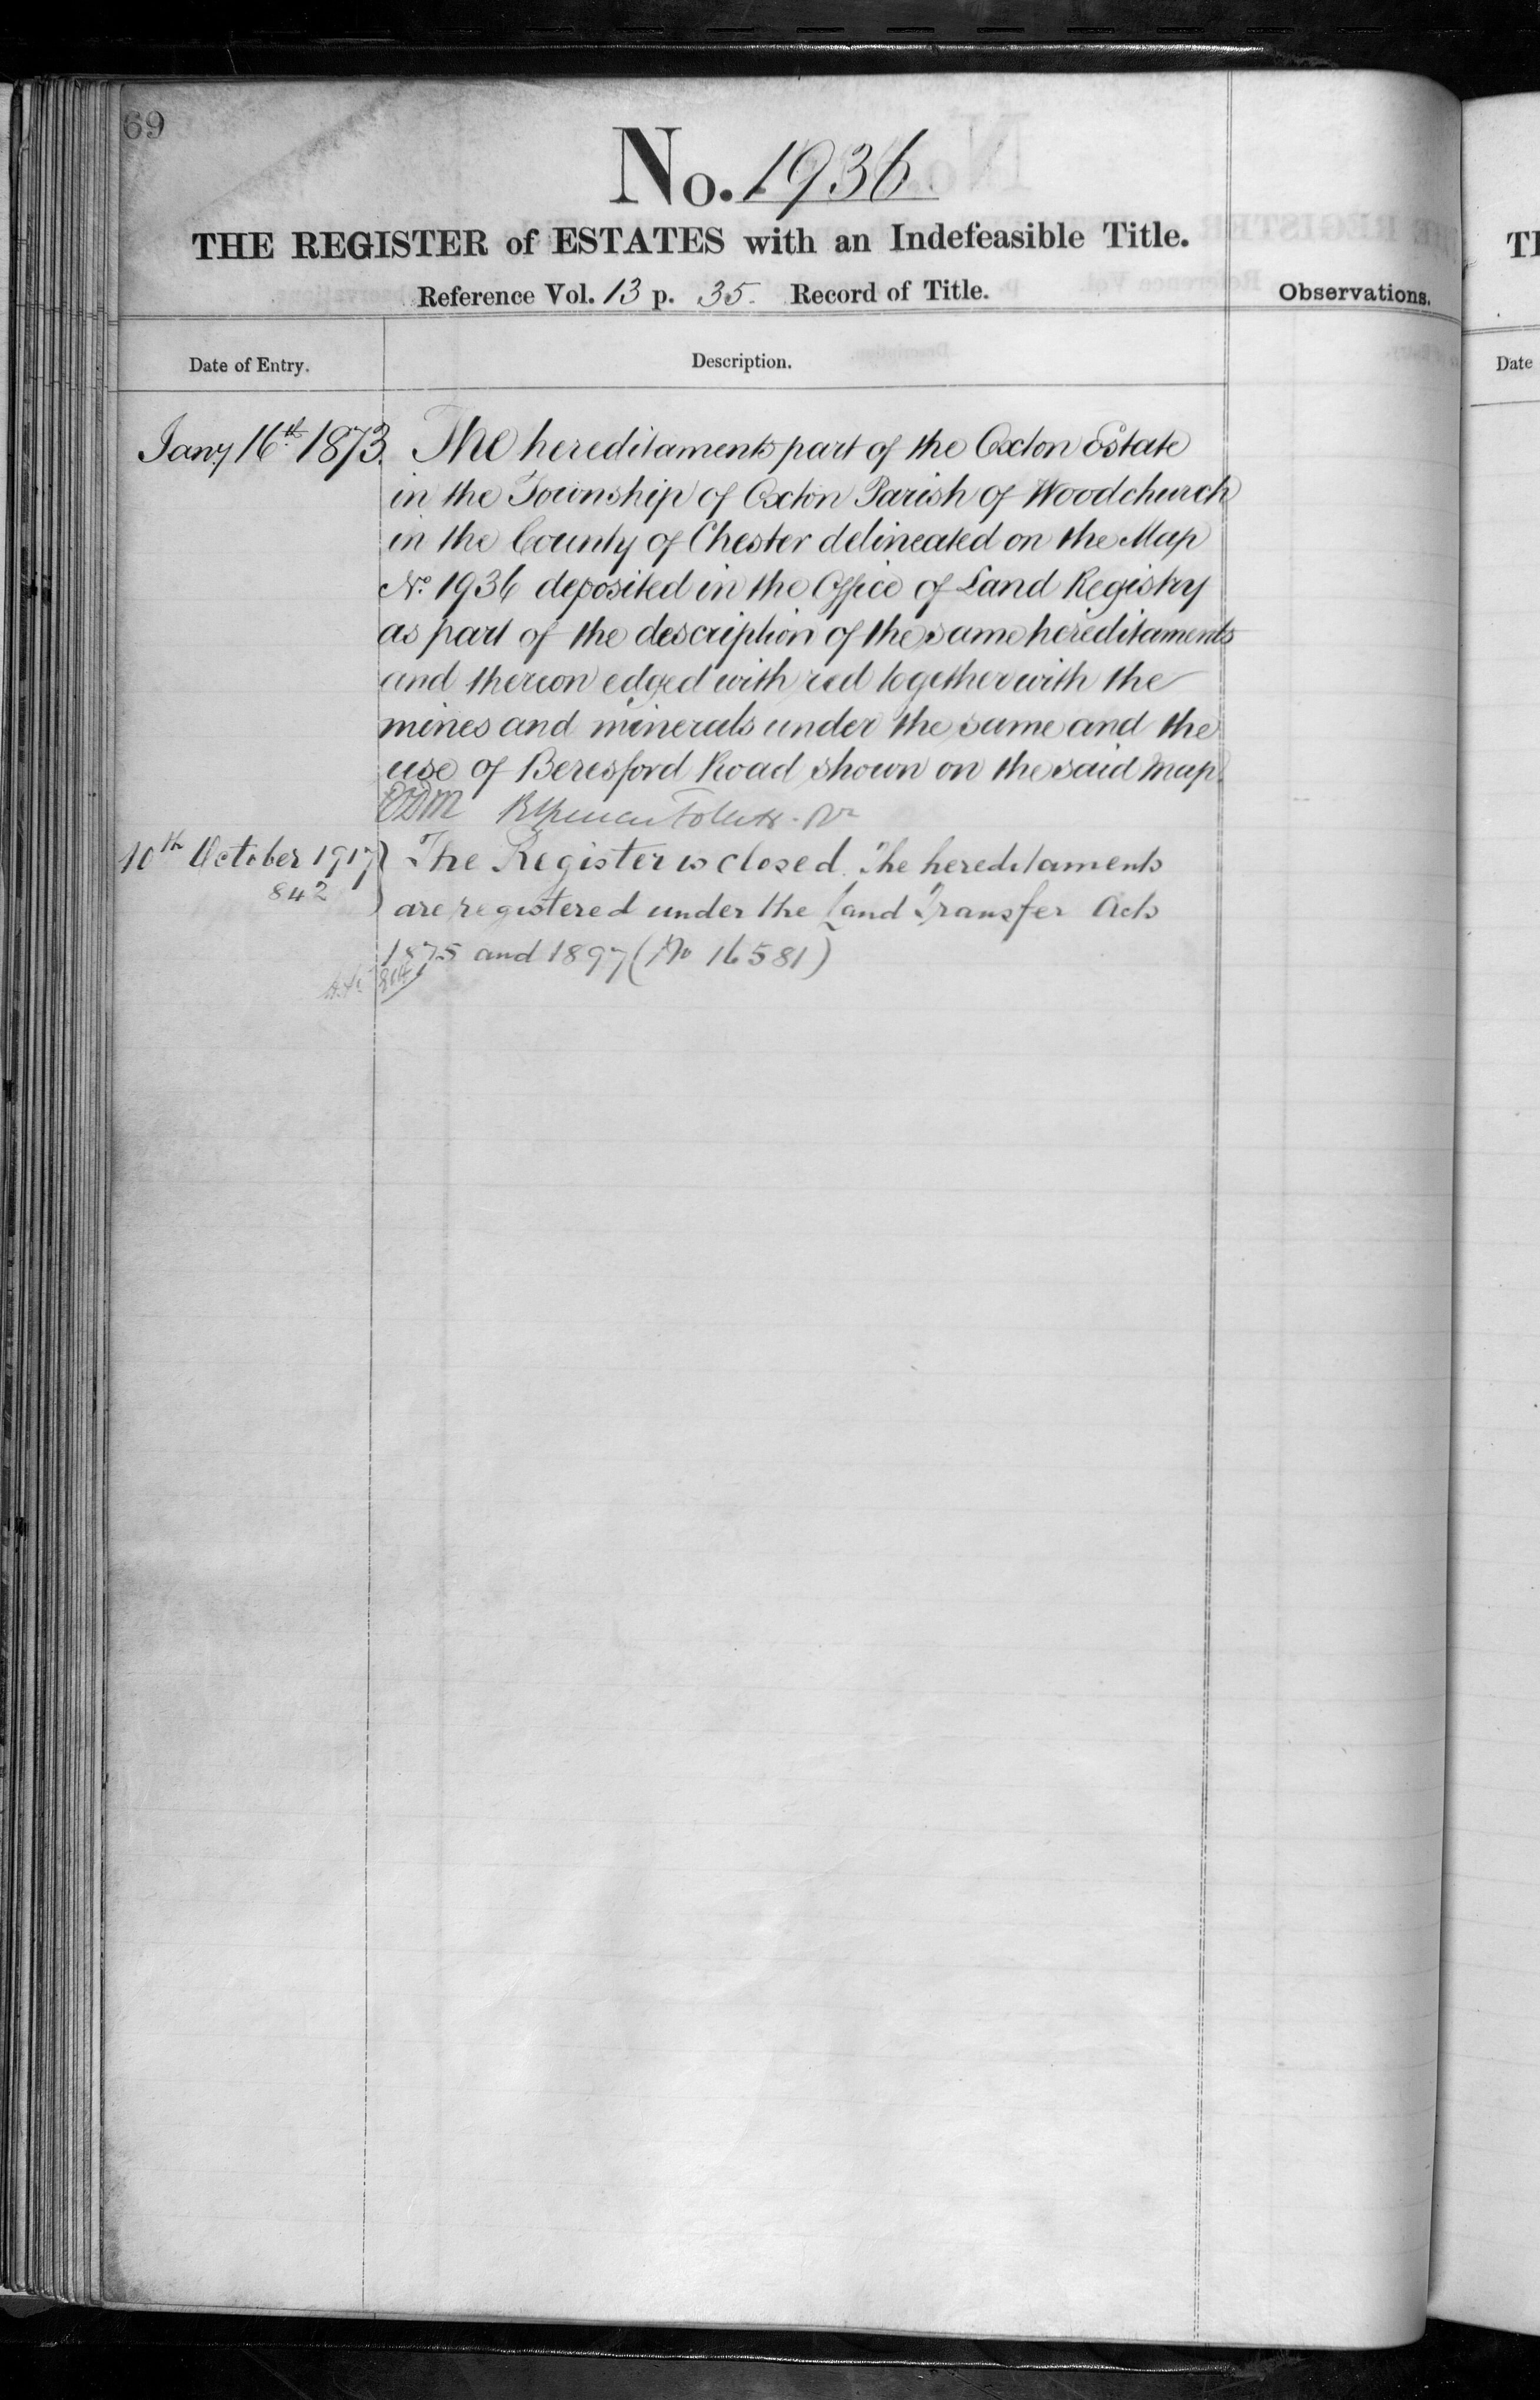 69
No. 1936
THE REGISTER of ESTATES with an Indefeasible Title.
Reference Vol. 13 p. 35. Record of Title.
Observations.
Date of Entry.
Description.
Jany 16th 1873. The hereditaments part of the Oxton Estate
in the Township of Oxton Parish of Woodchurch
in the County of Chester delineated on the Map
No. 1936 deposited in the Office of Land Registry
as part of the description of the same hereditaments
and thereon edged with red together with the
mines and minerals under the same and the
use of Beresford Road shown on the said Map.
10th October 1917 } The Register is closed. The hereditaments
842 } are registered under the Land Transfer Acts
1875 and 1897 (No 16581)
Date